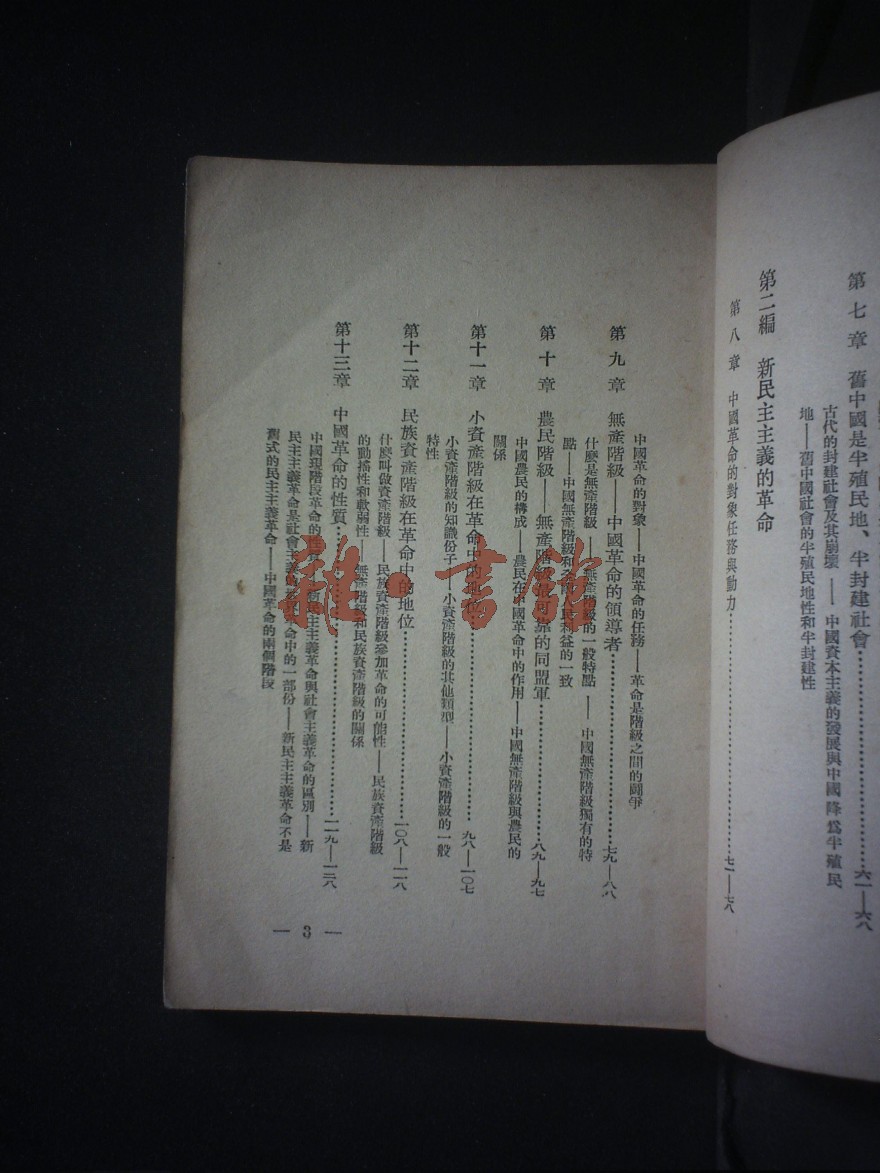 第七章 舊中國是半殖民地、半封建社會……六一—六八
古代的封建社會及其崩壞——中國資本主義的發展與中國降爲半殖民
地——舊中國社會的半殖民地性和半封建性
第二編 新民主主義的革命
第八章 中國革命的對象任務與動力……七一—七八
中國革命的對象——中國革命的任務——革命是階級之間的鬪爭
第九章 無產階級——中國革命的領導者……七九—八八
什麼是無產階級——無產階級的一般特點——中國無產階級獨有的特
點——中國無產階級和全國人民利益的一致
第十章 農民階級——無產階級最可靠的同盟軍……八九—九七
中國農民的構成——農民在中國革命中的作用——中國無產階級與農民的
關係
第十一章 小資產階級在革命中的地位……九八—一〇七
小資產階級的知識份子——小資產階級的其他類型——小資產階級的一般
特性
第十二章 民族資產階級在革命中的地位……一〇八—一一八
什麼叫做資產階級——民族資產階級參加革命的可能性——民族資產階級
的動搖性和軟弱性——無產階級和民族資產階級的關係
第十三章 中國革命的性質……一一九—一二八
中國現階段革命的性質——新民主主義革命與社會主義革命的區別——新
民主主義革命是社會主義的世界革命中的一部份——新民主主義革命不是
舊式的民主主義革命——中國革命的兩個階段
— 3 —
雅·書館